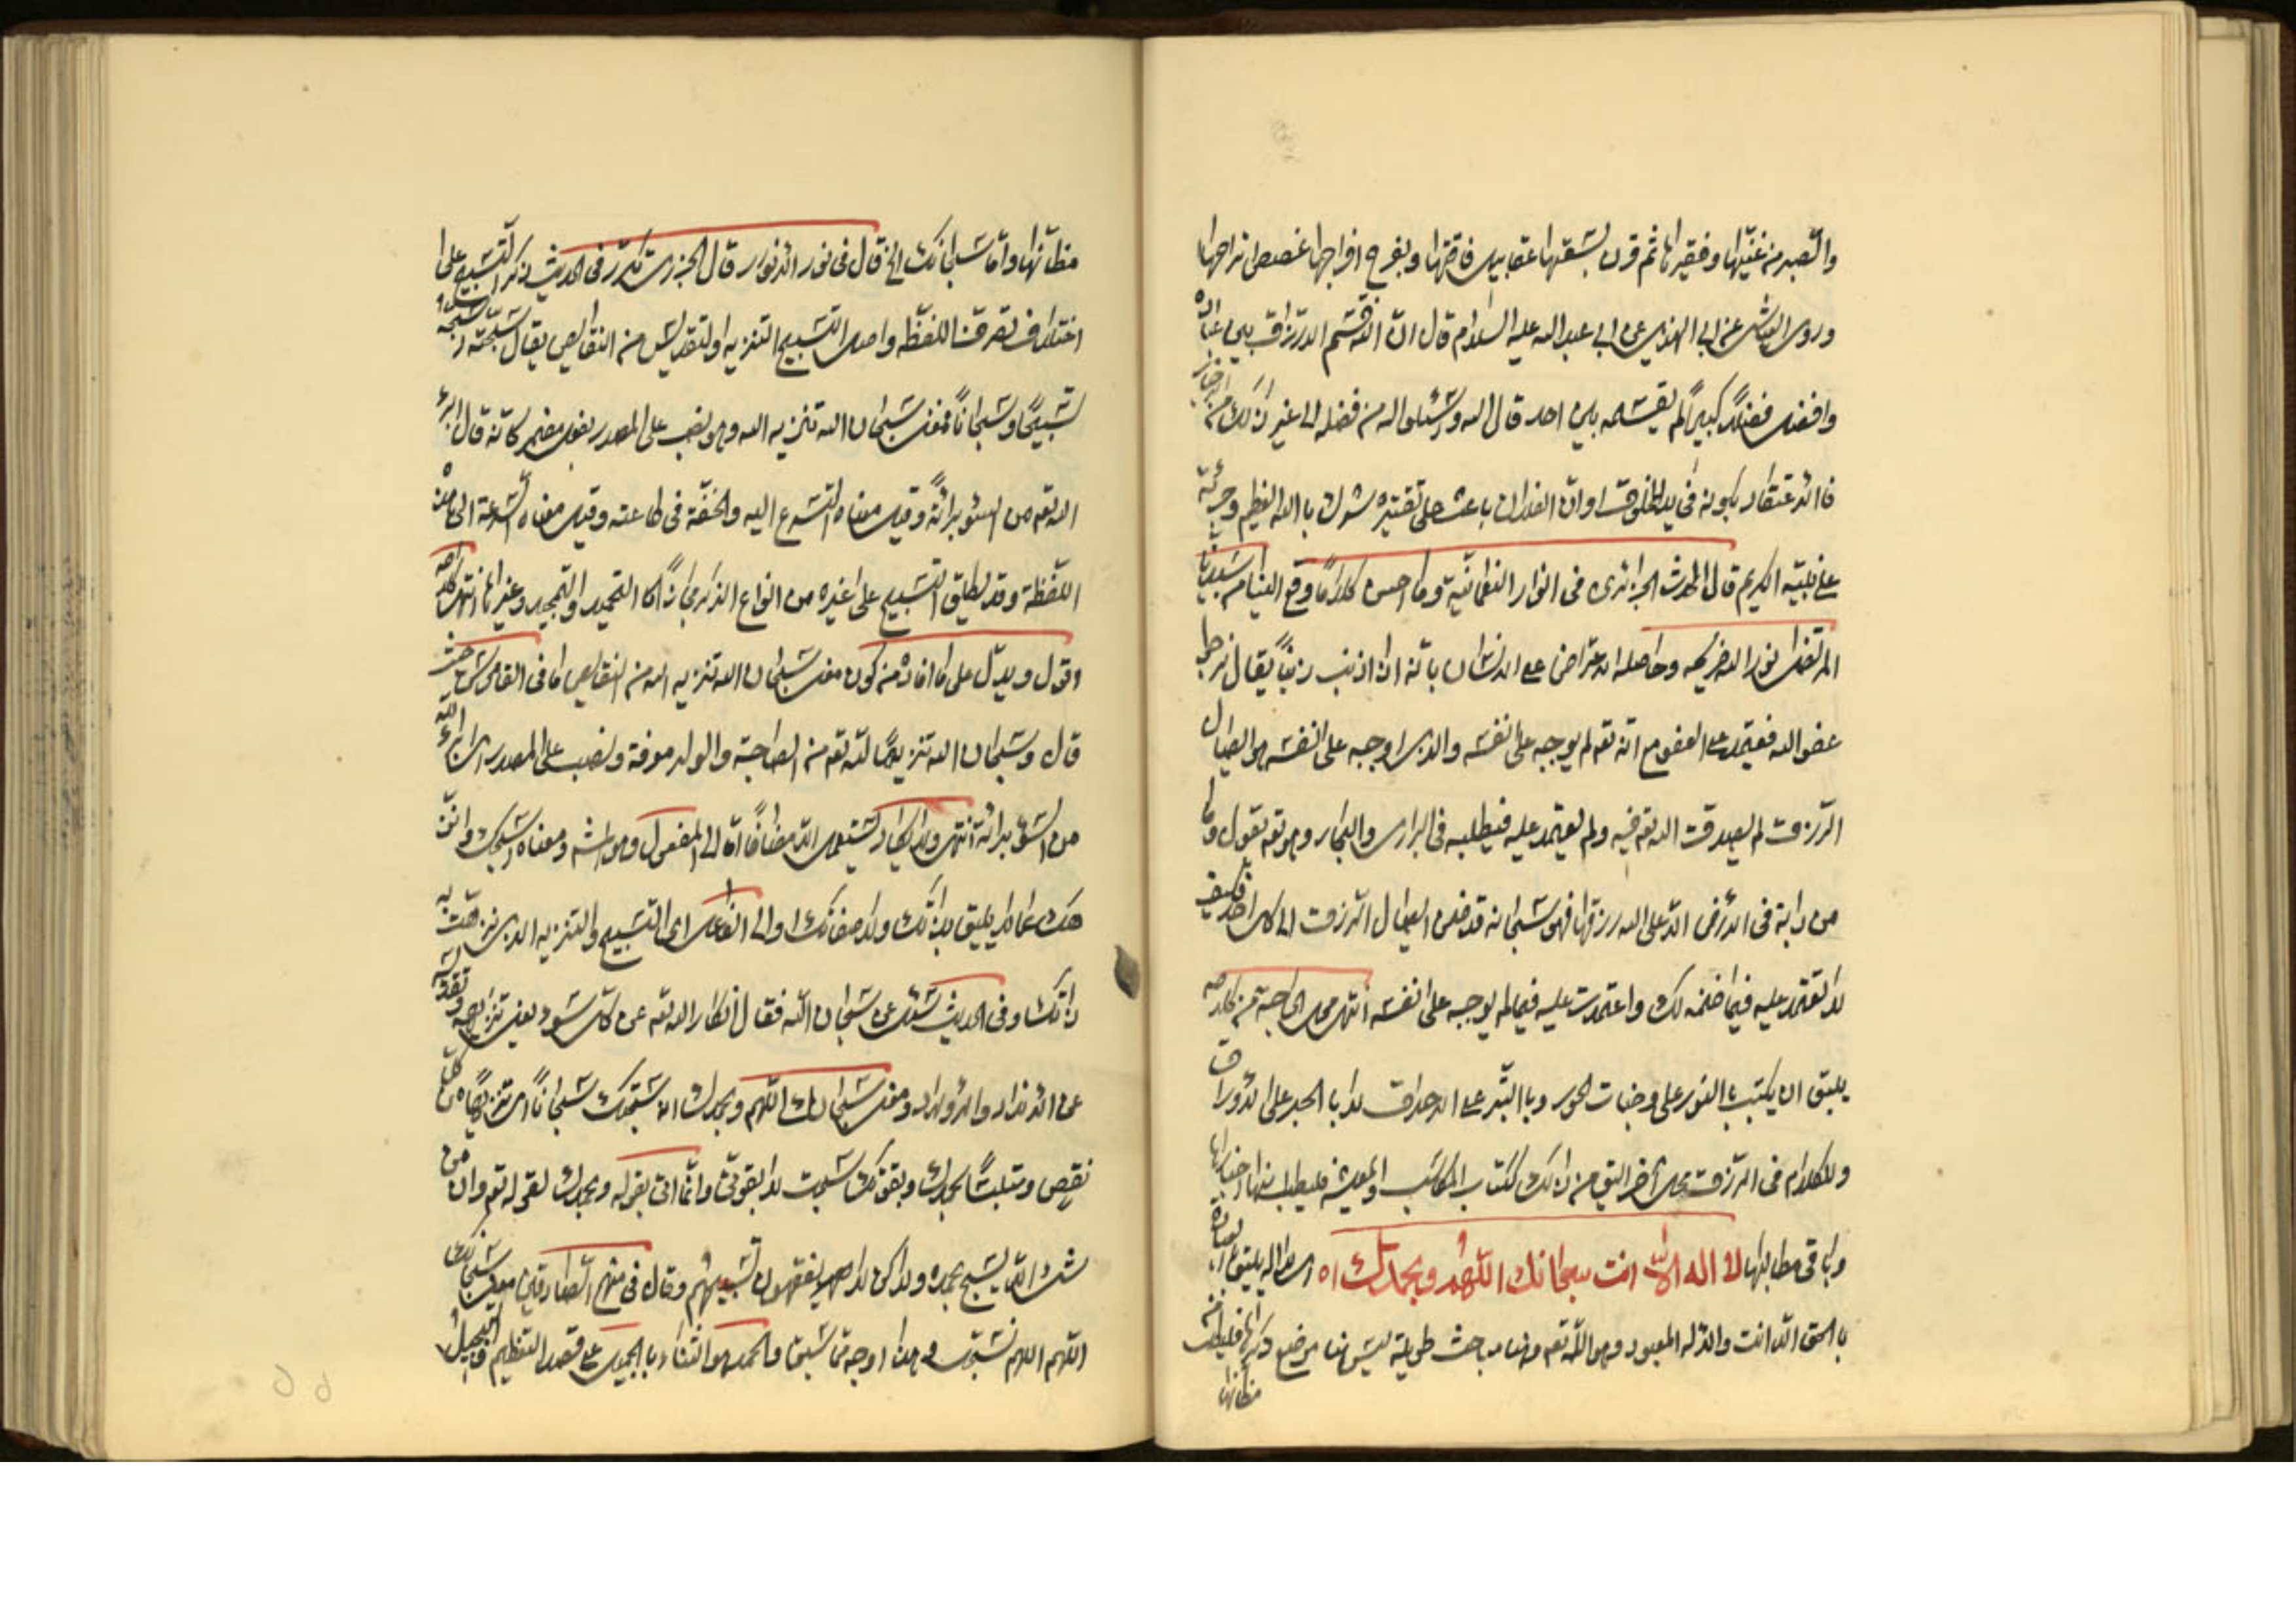 والصبر من غنيها وفقيرها ثم قرن بسعتها عقابيل فاقتها وبفرج افراجها غصص اتراحها
وروى العياشى عن ابى الهذيل عن ابى عبد الله عليه السلام قال ان الله قسم الارزاق بين عباده
وافضل فضلا كبيرا لم يقسمه بين احد قال الله وسئلوا الله من فضله الى غير ذلك من الاخبار
فالاعتقاد بكونه فى يد المخلوق او ان الفلان باعث على تقتيره شرك بالله العظيم وجرئة
على نبيه الكريم قال المحدث الجزائرى فى انوار النعمانية وما احسن كلاما وقع الينا من سيدنا
المرتضى نور الله ضريحه وحاصله الاعتراض على الانسان بانه اذا اذنب ذنبا يقال نرجوا
عفو الله فيعتمد على العفو مع انه تعه لم يوجبه على نفسه والذى اوجبه على نفسه هو ايصال
الرزق لم يصدق الله تعه فيه ولم يعتمد عليه فيطلبه فى البرارى والبحار وهو تعه يقول وما
من دابة فى الارض الا على الله رزقها فهو سبحانه قد ضمن ايصال الرزق الى كل احد فكيف
لا تعتمد عليه فيما ضمنه لك واعتمدت عليه فيما لم يوجبه على نفسه انتهى محل الحاجة من كلامه
يليق ان يكتب بالنور على وجنات الحور وبالتبر على الاحداق لا بالحبر على الاوراق
وللكلام فى الرزق محل اخر اليق من ذلك ككتاب المكاسب والمعيشة فليطلب منها اخبارها
وباقى مطالبها لا اله الا انت سبحانك اللهم وبحمدك اه اى لا اله يليق العبادة
بالحق الا انت والاله المعبود وهو الله تعه وهنا مباحث طويلة ليس هنا موضع ذكرها فليطلب من
مظانها
مظانها واما سبحانك الخ قال فى نور الانوار قال الجزرى تكرر فى الحديث ذكر التسبيح على
اختلاف تصرف اللفظه واصل التسبيح التنزيه والتقديس من النقايص يقال سبحته اسبحه
تسبيحا وسبحانا فمعنى سبحان الله تنزيه الله وهو نصب على المصدر بفعل مضمر كانه قال ابرئ
الله تعه من السوء برائة وقيل معناه التسرع اليه والخفة فى طاعته وقيل معناه السرعة الى هذه
اللفظة وقد يطلق التسبيح على غيره من انواع الذكر مجازا كالتحميد والتمجيد وغيرها انتهى كلامه
اقول ويدل على ما افاده من كون معنى سبحان الله تنزيه الله من النقايص ما فى القاموس حيث
قال وسبحان الله تنزيها لله تعه من الصاحبة والولد معرفة ونصب على المصدر اى ابرئ الله
من السوء برائة انتهى ولا يكاد يستعمل الا مضافا اما الى المفعول وهو اشهر ومعناه اسبحك وانزهك
عما لا يليق بذاتك ولا صفاتك او الى الفاعل اى التسبيح والتنزيه الذى نزهت به
ذاتك وفى الحديث سئل عن سبحان الله فقال انكار الله تعه عن كل سوء يعنى تنزيهه وتقدسه
عن الانداد والاولاد ومعنى سبحانك اللهم وبحمدك اى سبحتك سبحانا اى تنزيها من كل
نقص ومتلبسا بحمدك وبقوتك سبحت لا بقوتى وانما اتى بقوله وبحمدك لقوله تعه وان من
شئ الا يسبح بحمده ولكن لا يفقهون تسبيحهم وقال فى منهج الصادقين معنى سبحانك
اللهم اللهم نسبحك فى هذا اوجه ما سبق والحمد هو الثناء بالجميل على قصد التعظيم والتبجيل